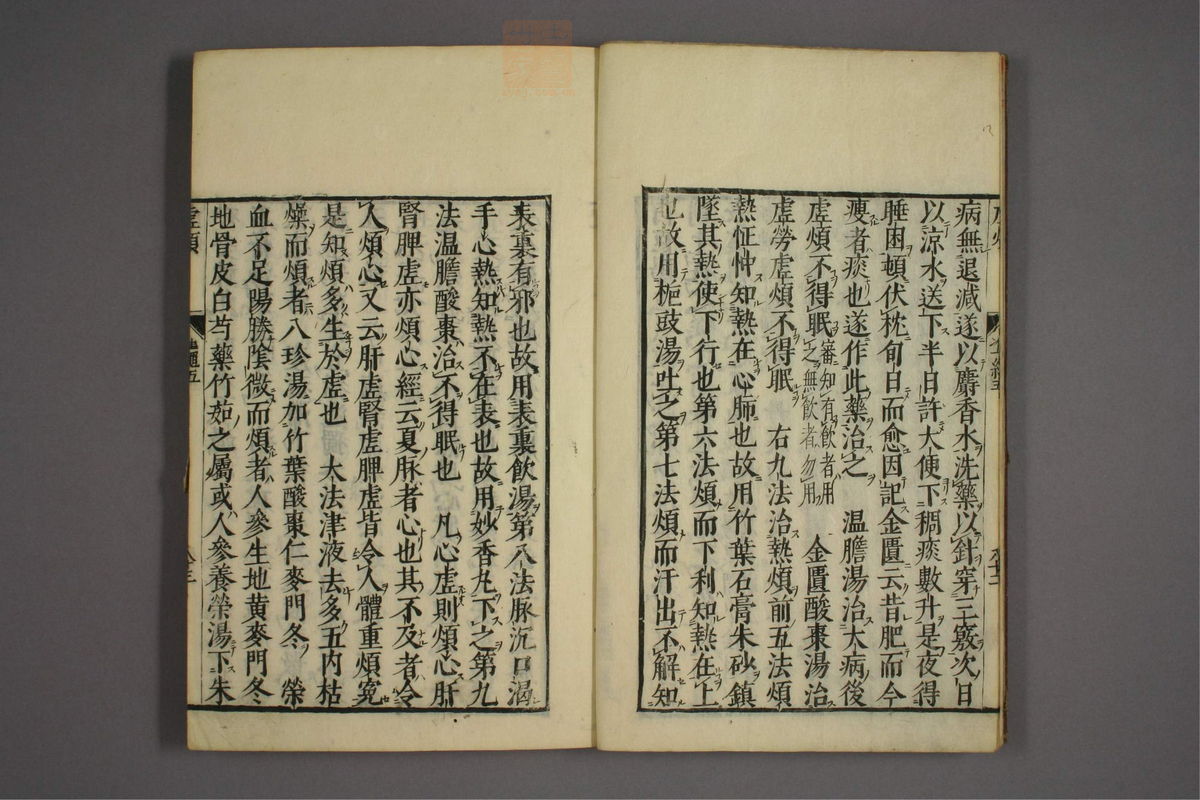 病無退減遂以麝香水洗藥以針穿三竅次日
以涼水送下半日許大便下稠痰數升是夜得
睡困頓伏枕旬日而愈因記金匱云昔肥而今
瘦者痰也遂作此藥治之　溫膽湯治大病後
虛煩不得眠審知有飲者用之無飲者勿用　金匱酸棗湯治
虛勞虛煩不得眠　右九法治熱煩前五法煩
熱怔忡知熱在心肺也故用竹葉石膏朱砂鎮
墜其熱使下行也第六法煩而下利知熱在上
也故用梔豉湯吐之第七法煩而汗出不解知
表裏有邪也故用表裏飲湯第八法脉沉口渴
手心熱知熱不在表也故用妙香丸下之第九
法溫膽酸棗治不得眠也　凡心虛則煩心肝
腎脾虛亦煩心經云夏脉者心也其不及者令
人煩心又云肝虛腎虛脾虛皆令人體重煩寃
是知煩多生於虛也　大法津液去多五内枯
燥而煩者八珍湯加竹葉酸棗仁麥門冬　榮
血不足陽勝陰微而煩者人參生地黄麥門冬
地骨皮白芍藥竹茹之屬或人參養榮湯下朱
虛煩